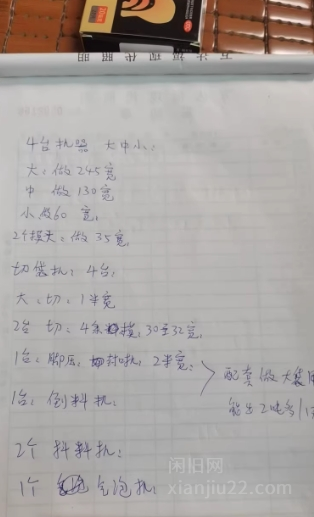 4台机器 大中小:
大:做245宽
中 做130宽
小做60 宽,
2个模头:做35宽
切袋机:4台,
大:切:1米宽
2台 切:4条 30至32宽,
1台:脚底,封口机,2米宽,
配套做大袋用
能出2吨多/
1台:倒料机:
2个 抖料机:
1个 气泡机:
闲旧网
xianjiu22.com